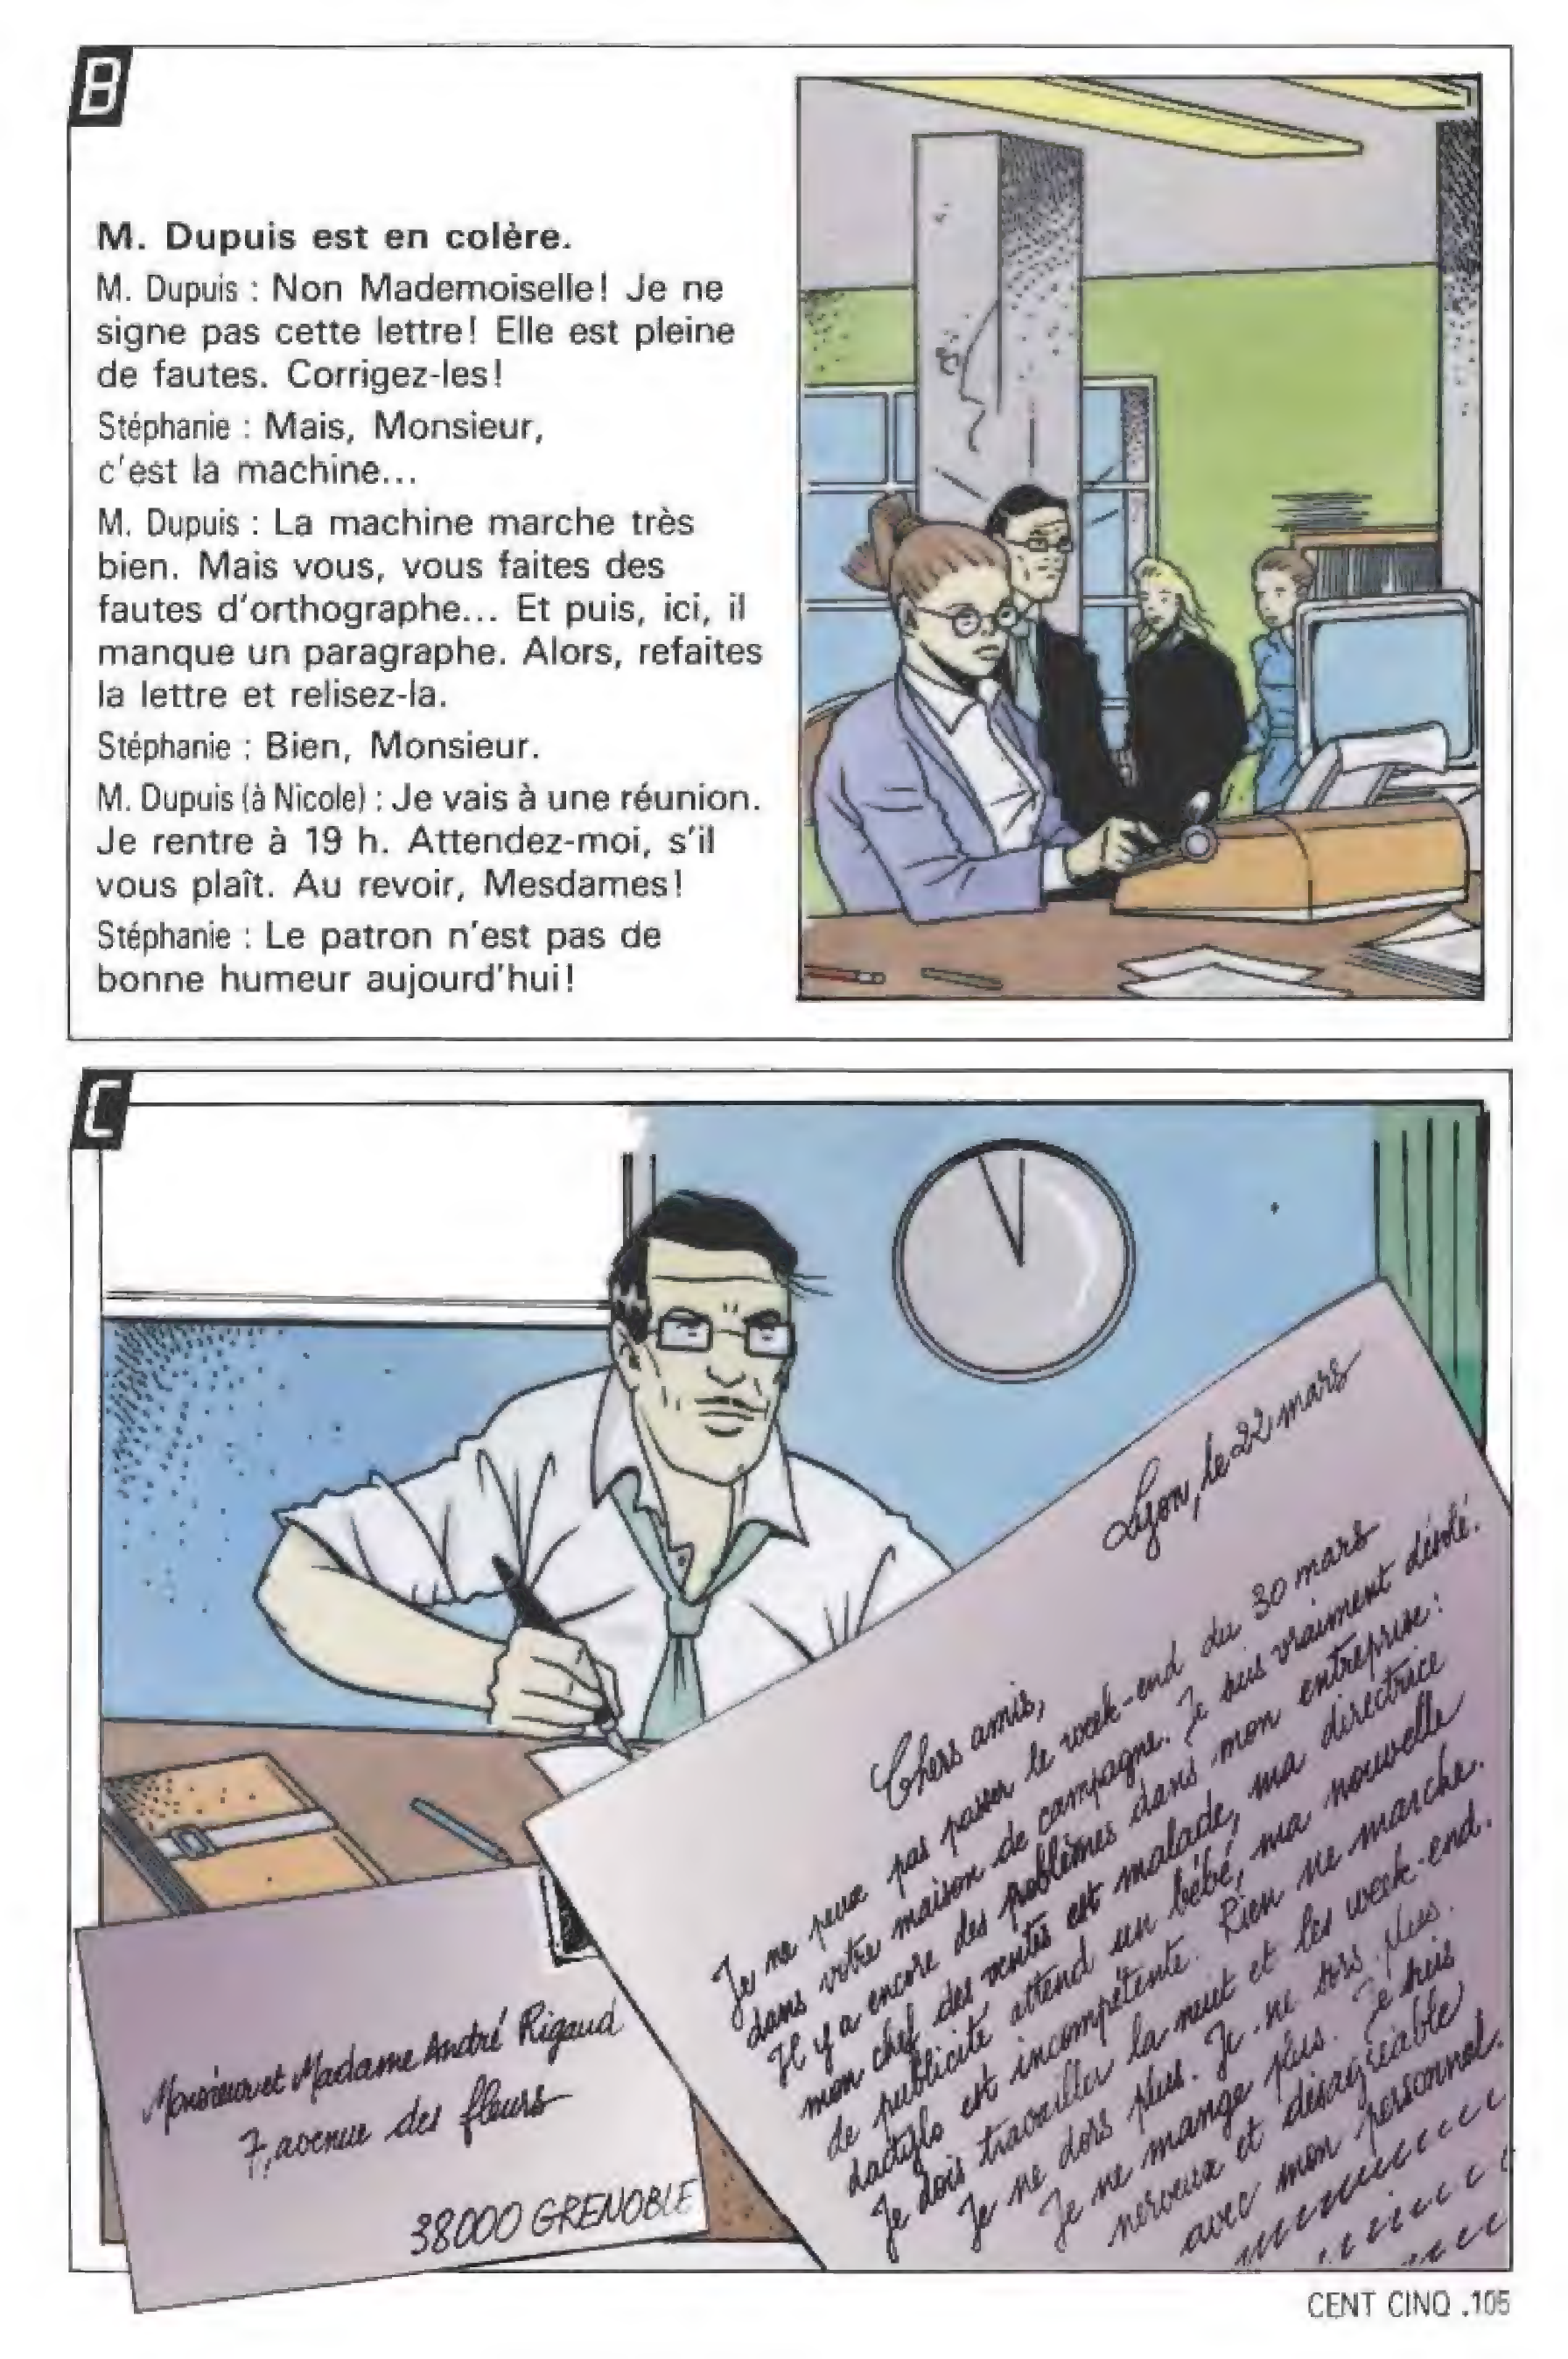 B
M. Dupuis est en colère.
M. Dupuis : Non Mademoiselle! Je ne
signe pas cette lettre! Elle est pleine
de fautes. Corrigez-les!
Stéphanie : Mais, Monsieur,
c'est la machine...
M. Dupuis : La machine marche très
bien. Mais vous, vous faites des
fautes d'orthographe... Et puis, ici, il
manque un paragraphe. Alors, refaites
la lettre et relisez-la.
Stéphanie : Bien, Monsieur.
M. Dupuis (à Nicole) : Je vais à une réunion.
Je rentre à 19 h. Attendez-moi, s'il
vous plaît. Au revoir, Mesdames!
Stéphanie : Le patron n'est pas de
bonne humeur aujourd'hui!
C
Lyon, le 22 mars
Chers amis,
Je ne peux pas passer le week-end du 30 mars
dans votre maison de campagne. Je suis vraiment désolé.
Il y a encore des problèmes dans mon entreprise :
mon chef des ventes est malade, ma directrice
de publicité attend un bébé, ma nouvelle
dactylo est incompétente. Rien ne marche.
Je dois travailler la nuit et les week-end.
Je ne dors plus. Je ne sors plus.
Je ne mange plus. Je suis
nerveux et désagréable
avec mon personnel.
Monsieur et Madame André Rigaud
7, avenue des fleurs
38000 GRENOBLE
CENT CINQ .105